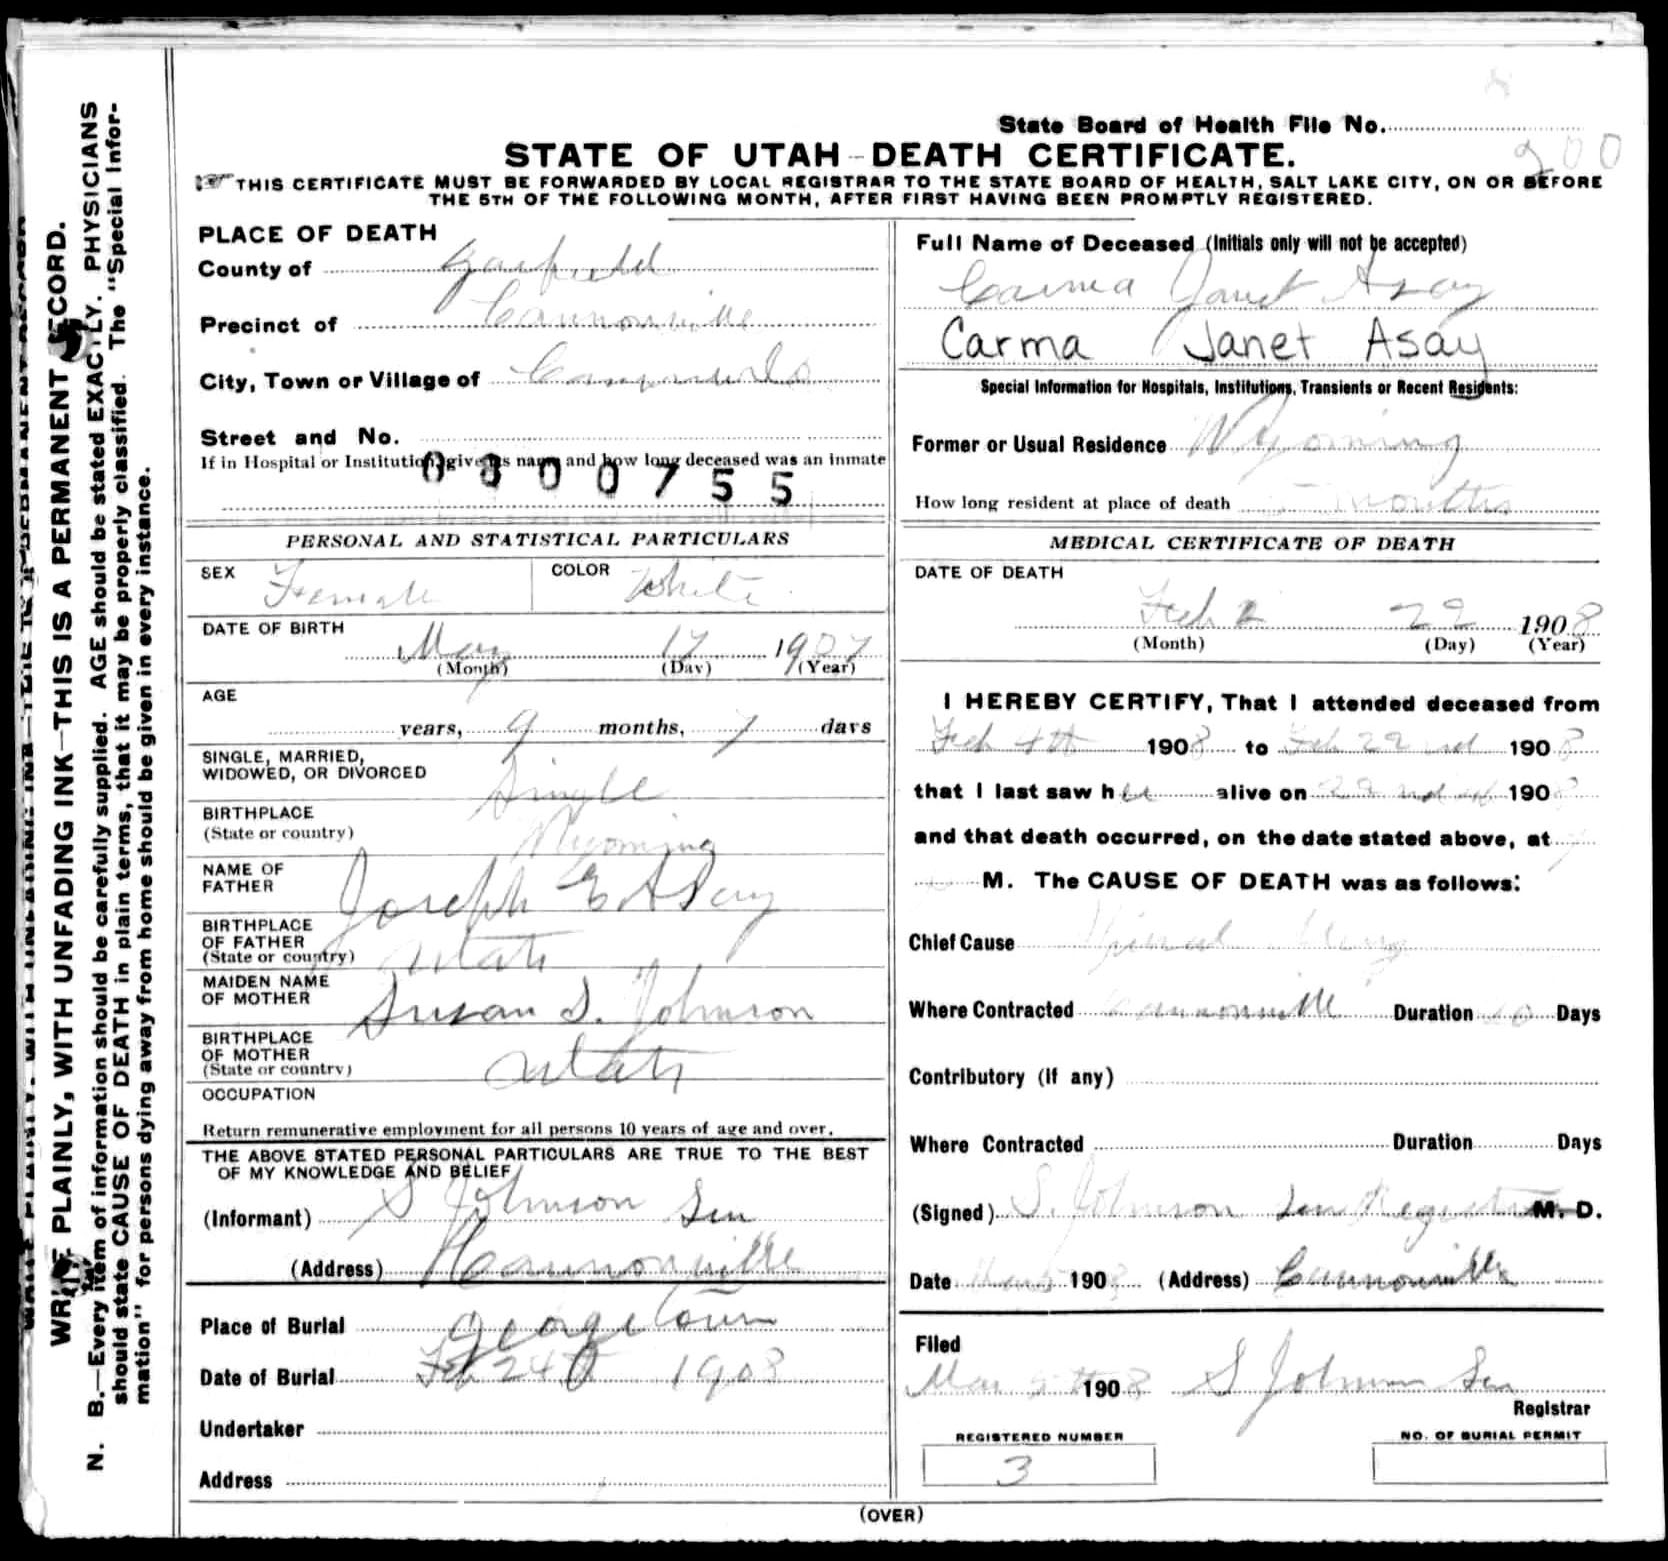 State Board of Health File No.
200
STATE OF UTAH—DEATH CERTIFICATE.
THIS CERTIFICATE MUST BE FORWARDED BY LOCAL REGISTRAR TO THE STATE BOARD OF HEALTH, SALT LAKE CITY, ON OR BEFORE
THE 5TH OF THE FOLLOWING MONTH, AFTER FIRST HAVING BEEN PROMPTLY REGISTERED.
WRITE PLAINLY, WITH UNFADING INK—THIS IS A PERMANENT RECORD.
N. B.—Every item of information should be carefully supplied. AGE should be stated EXACTLY. PHYSICIANS
should state CAUSE OF DEATH in plain terms, that it may be properly classified. The "Special Infor-
mation" for persons dying away from home should be given in every instance.
PLACE OF DEATH
County of Garfield
Precinct of Cannonville
City, Town or Village of Cannonville
Street and No.
If in Hospital or Institution, give its name and how long deceased was an inmate
0800755
PERSONAL AND STATISTICAL PARTICULARS
SEX Female COLOR White
DATE OF BIRTH
May 17 1907
(Month) (Day) (Year)
AGE
years, 9 months, 7 days
SINGLE, MARRIED,
WIDOWED, OR DIVORCED Single
BIRTHPLACE
(State or country) Wyoming
NAME OF
FATHER Joseph E Asay
BIRTHPLACE
OF FATHER
(State or country) Utah
MAIDEN NAME
OF MOTHER Susan S. Johnson
BIRTHPLACE
OF MOTHER
(State or country) Utah
OCCUPATION
Return remunerative employment for all persons 10 years of age and over.
THE ABOVE STATED PERSONAL PARTICULARS ARE TRUE TO THE BEST
OF MY KNOWLEDGE AND BELIEF
(Informant) S Johnson Sen
(Address) Cannonville
Place of Burial Georgetown
Date of Burial Feb 24th 1908
Undertaker
Address
Full Name of Deceased (Initials only will not be accepted)
Carma Janet Asay
Carma Janet Asay
Special Information for Hospitals, Institutions, Transients or Recent Residents:
Former or Usual Residence Wyoming
How long resident at place of death months
MEDICAL CERTIFICATE OF DEATH
DATE OF DEATH
Feb 2 22 1908
(Month) (Day) (Year)
I HEREBY CERTIFY, That I attended deceased from
Feb 4th 1908 to Feb 22nd 1908
that I last saw her alive on 22nd 1908
and that death occurred, on the date stated above, at
M. The CAUSE OF DEATH was as follows:
Chief Cause
Where Contracted Cannonville Duration Days
Contributory (if any)
Where Contracted Duration Days
(Signed) S. Johnson Sen Registrar M. D.
Date Mar 5 1908 (Address) Cannonville
Filed
Mar 5th 1908 S Johnson Sen
Registrar
REGISTERED NUMBER
3
NO. OF BURIAL PERMIT
(OVER)